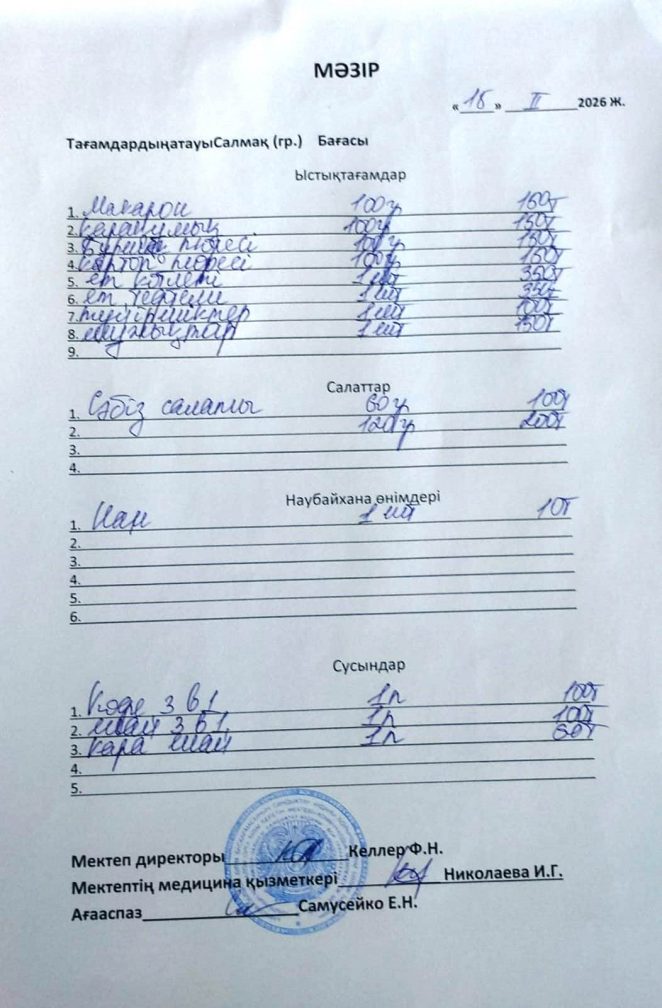 МӘЗІР
« 18 » II 2026 ж.
ТағамдардыңатауыСалмақ (гр.) Бағасы
Ыстықтағамдар
1. Макарон 100гр 150т
2. қарақұмық 100гр 150т
3. Бұршақ пюресі 100гр 150т
4. картоп пюресі 100гр 150т
5. ет котлеті 1 шт 350т
6. ет тефтели 1 шт 350т
7. 1 шт 100т
8. шұжықтар 1 шт 150т
9.
Салаттар
1. Сәбіз салаты 60 гр 100т
2. 120 гр 200т
3.
4.
Наубайхана өнімдері
1. Нан 1 шт 10т
2.
3.
4.
5.
6.
Сусындар
1. Кофе 3 в 1 1п 100т
2. шай 3 в 1 1п 100т
3. қара шай 1п 60т
4.
5.
Мектеп директоры Келлер Ф.Н.
Мектептің медицина қызметкері Николаева И.Г.
Ағааспаз Самусейко Е.Н.